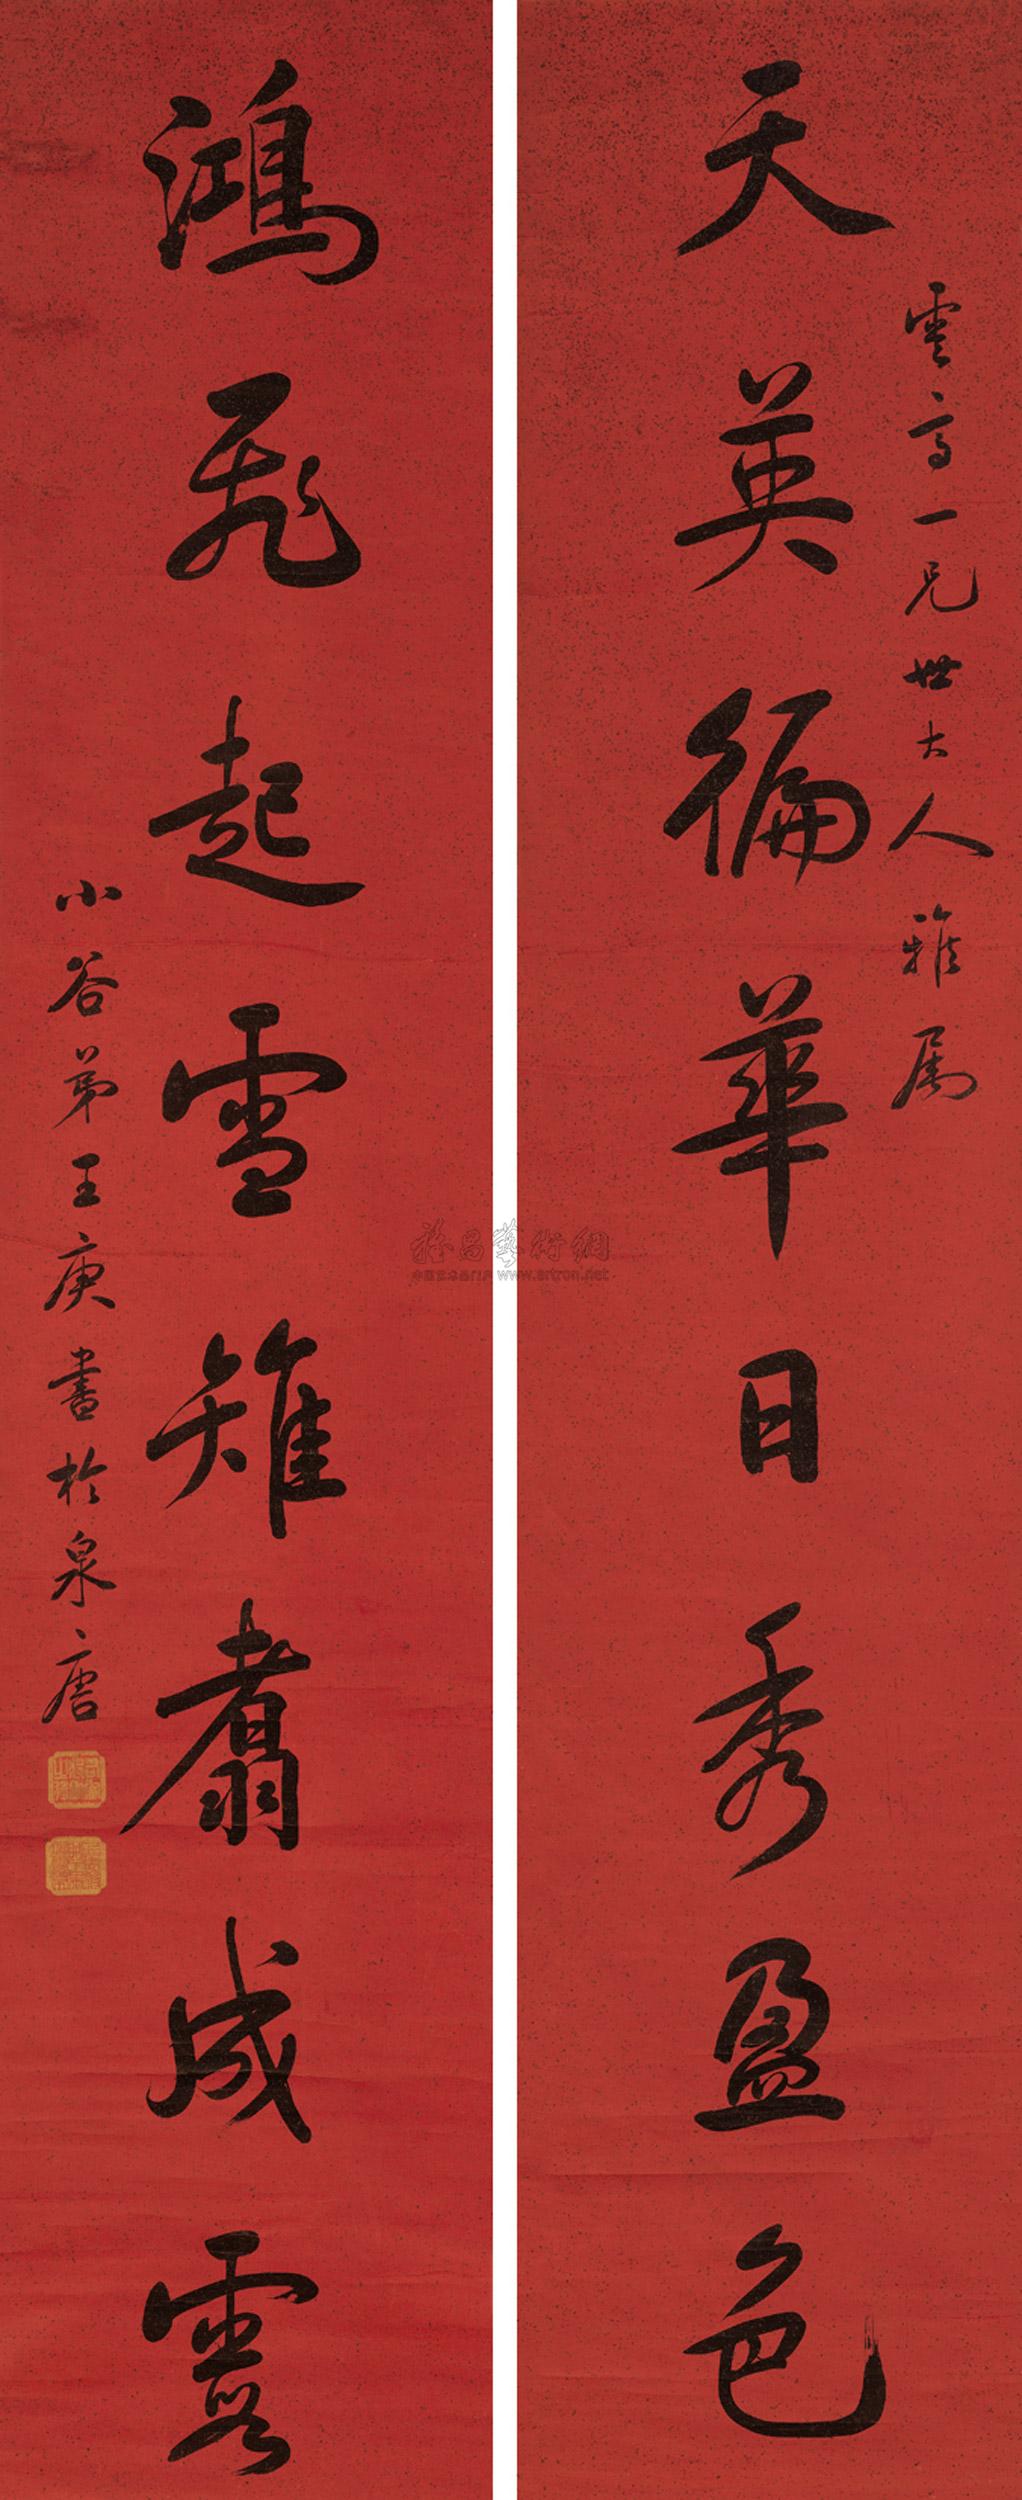 雲亭一兄世大人雅属
天英徧華日秀盈色
鴻飛起雪雉翥成霞
小谷弟王庚書於泉唐
雅昌藝術網
www.artron.net